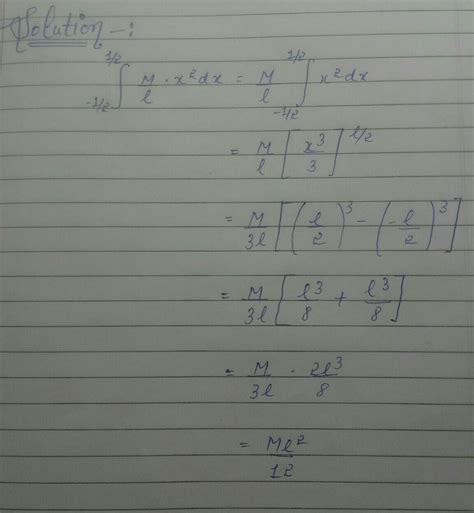 Solution -:
-1/2∫^1/2 M/l · x² dx = M/l -1/2∫^1/2 x² dx
= M/l [x³/3]^l/2
= M/3l [(l/2)³ - (-l/2)³]
= M/3l [l³/8 + l³/8]
= M/3l · 2l³/8
= Ml²/12